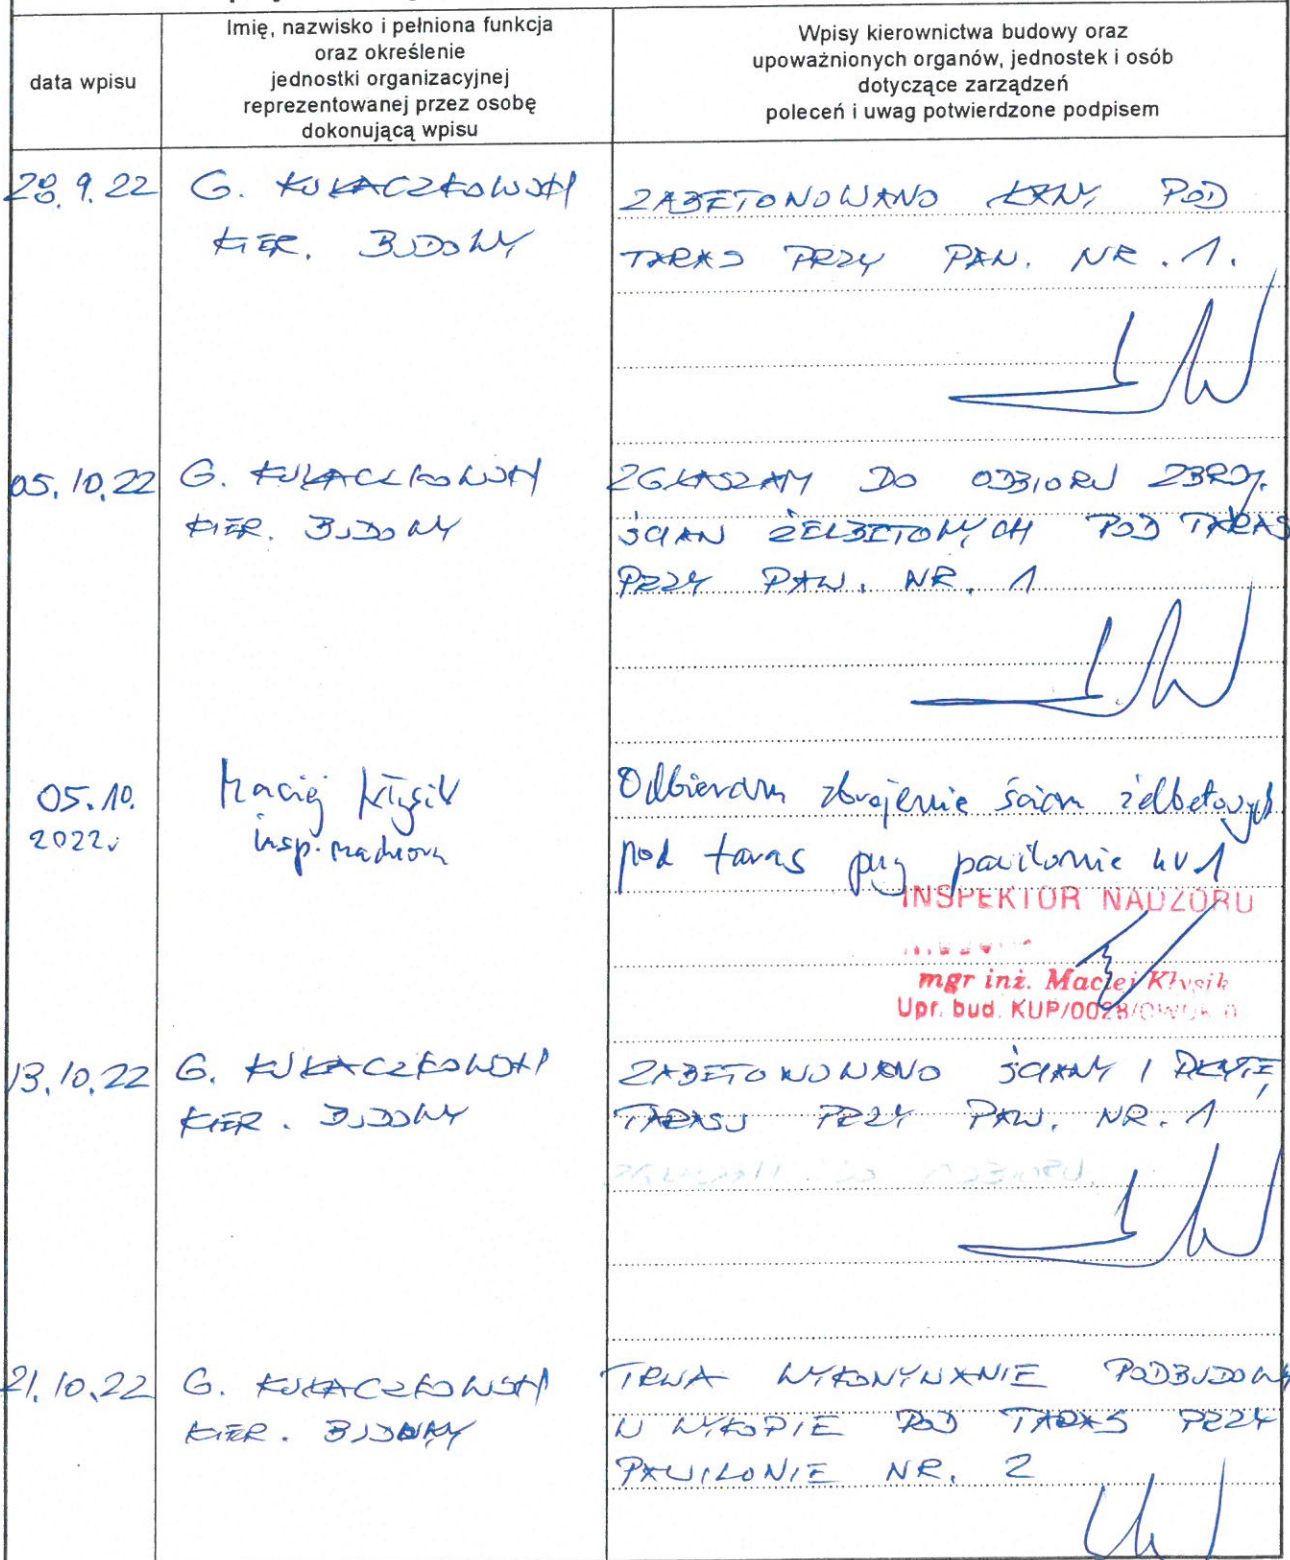 data wpisu
Imię, nazwisko i pełniona funkcja
oraz określenie
jednostki organizacyjnej
reprezentowanej przez osobę
dokonującą wpisu
Wpisy kierownictwa budowy oraz
upoważnionych organów, jednostek i osób
dotyczące zarządzeń
poleceń i uwag potwierdzone podpisem
28.9.22
G. KUKACZKOWSKI
KIER. BUDOWY
ZABETONOWANO ŁAWY POD
TARAS PRZY PAW. NR. 1.
05.10.22
G. KUKACZKOWSKI
KIER. BUDOWY
ZGŁASZAM DO ODBIORU ZBROJ.
ŚCIAN ŻELBETOWYCH POD TARAS
PRZY PAW. NR. 1
05.10.
2022r
Maciej Kłysik
insp. nadzoru
Odbieram zbrojenie ścian żelbetowych
pod taras przy pawilonie nr 1
INSPEKTOR NADZORU
mgr inż. Maciej Kłysik
Upr. bud. KUP/0028/OWOK
13.10.22
G. KUKACZKOWSKI
KIER. BUDOWY
ZABETONOWANO ŚCIANY I PŁYTĘ
TARASU PRZY PAW. NR. 1
21.10.22
G. KUKACZKOWSKI
KIER. BUDOWY
TRWA WYKONYWANIE PODBUDOWY
W WYKOPIE POD TARAS PRZY
PAWILONIE NR. 2